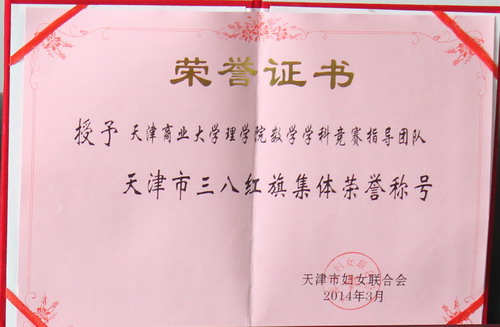 荣誉证书
授予 天津商业大学理学院数学学科竞赛指导团队
天津市三八红旗集体荣誉称号
天津市妇女联合会
2014年3月